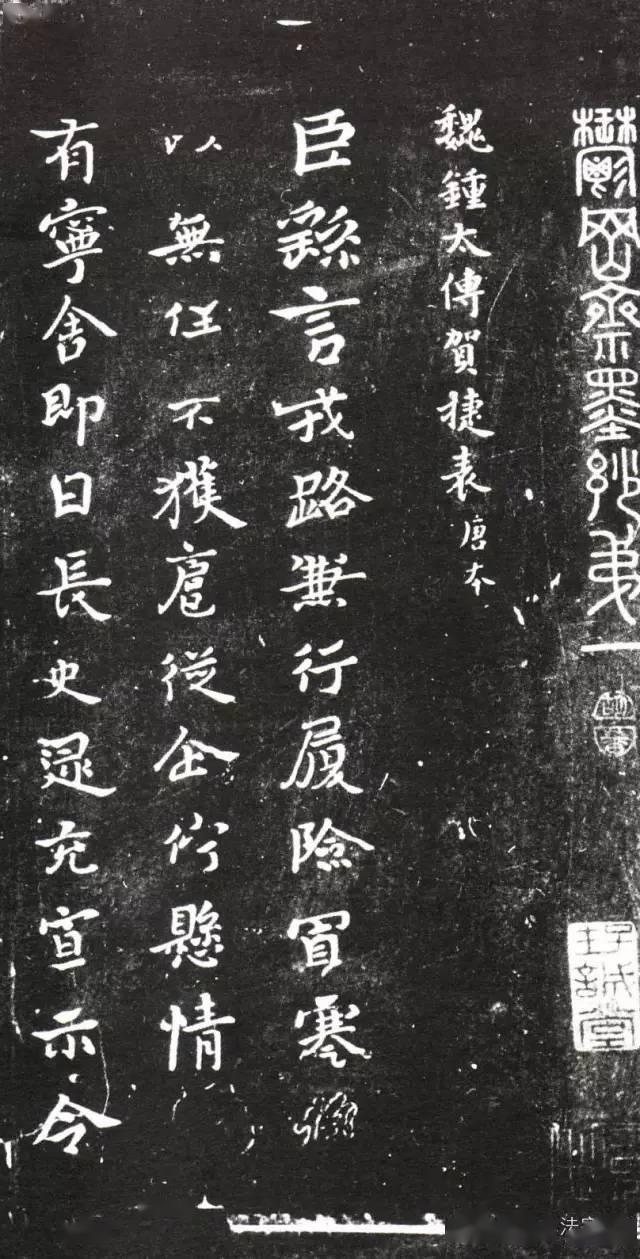 鬱岡齋墨玅弟一
魏鍾太傅賀捷表唐本
臣繇言戎路兼行履險冒寒
以無任不獲扈從企佇懸情
有寧舍即日長史逯充宣示令